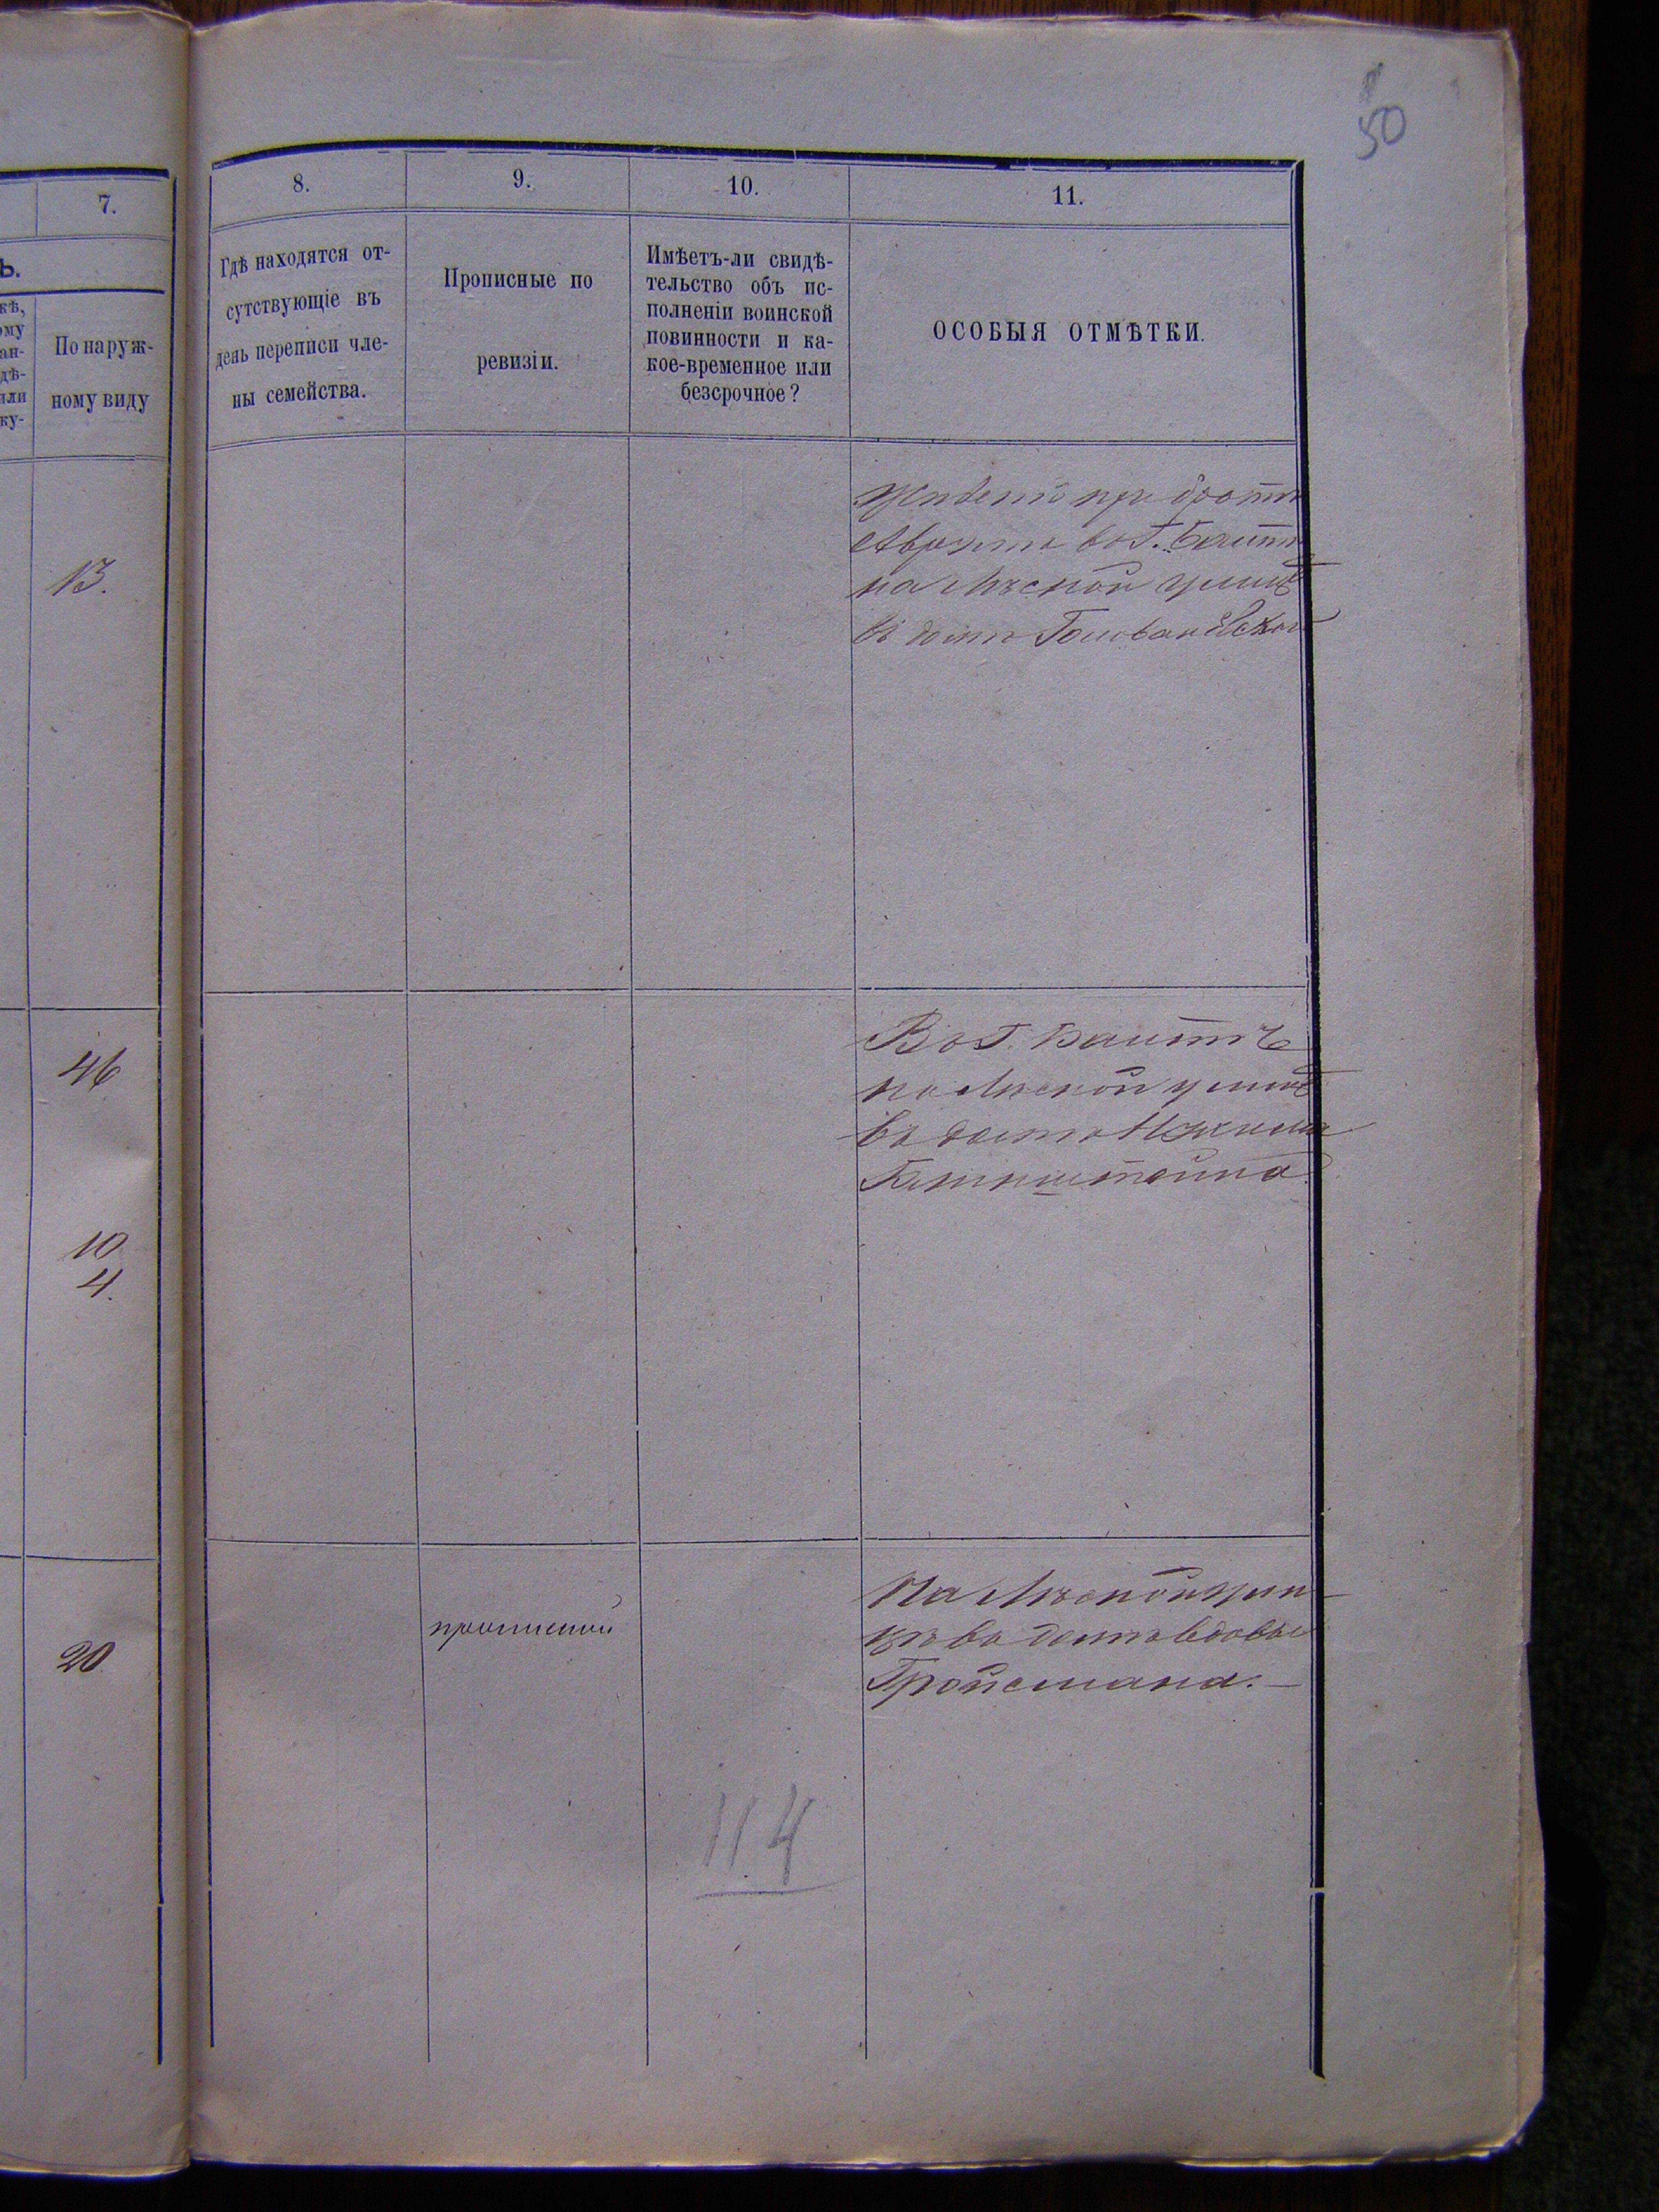 50
7.
8.
9.
10.
11.
Ь.
По наруж-
ному виду
Гдѣ находятся от-
сутствующіе въ
день переписи чле-
ны семейства.
Прописные по
ревизіи.
Имѣетъ-ли свидѣ-
тельство объ ис-
полненіи воинской
повинности и ка-
кое-временное или
безсрочное?
ОСОБЫЯ ОТМѢТКИ.
13.
при братѣ
въ Г. Балтѣ
на улицѣ
въ домѣ
46
10
4.
Въ Г. Балтѣ
на улицѣ
въ домѣ
20
прописной
На ули
цѣ въ домѣ вдовы
Гройсмана.
114